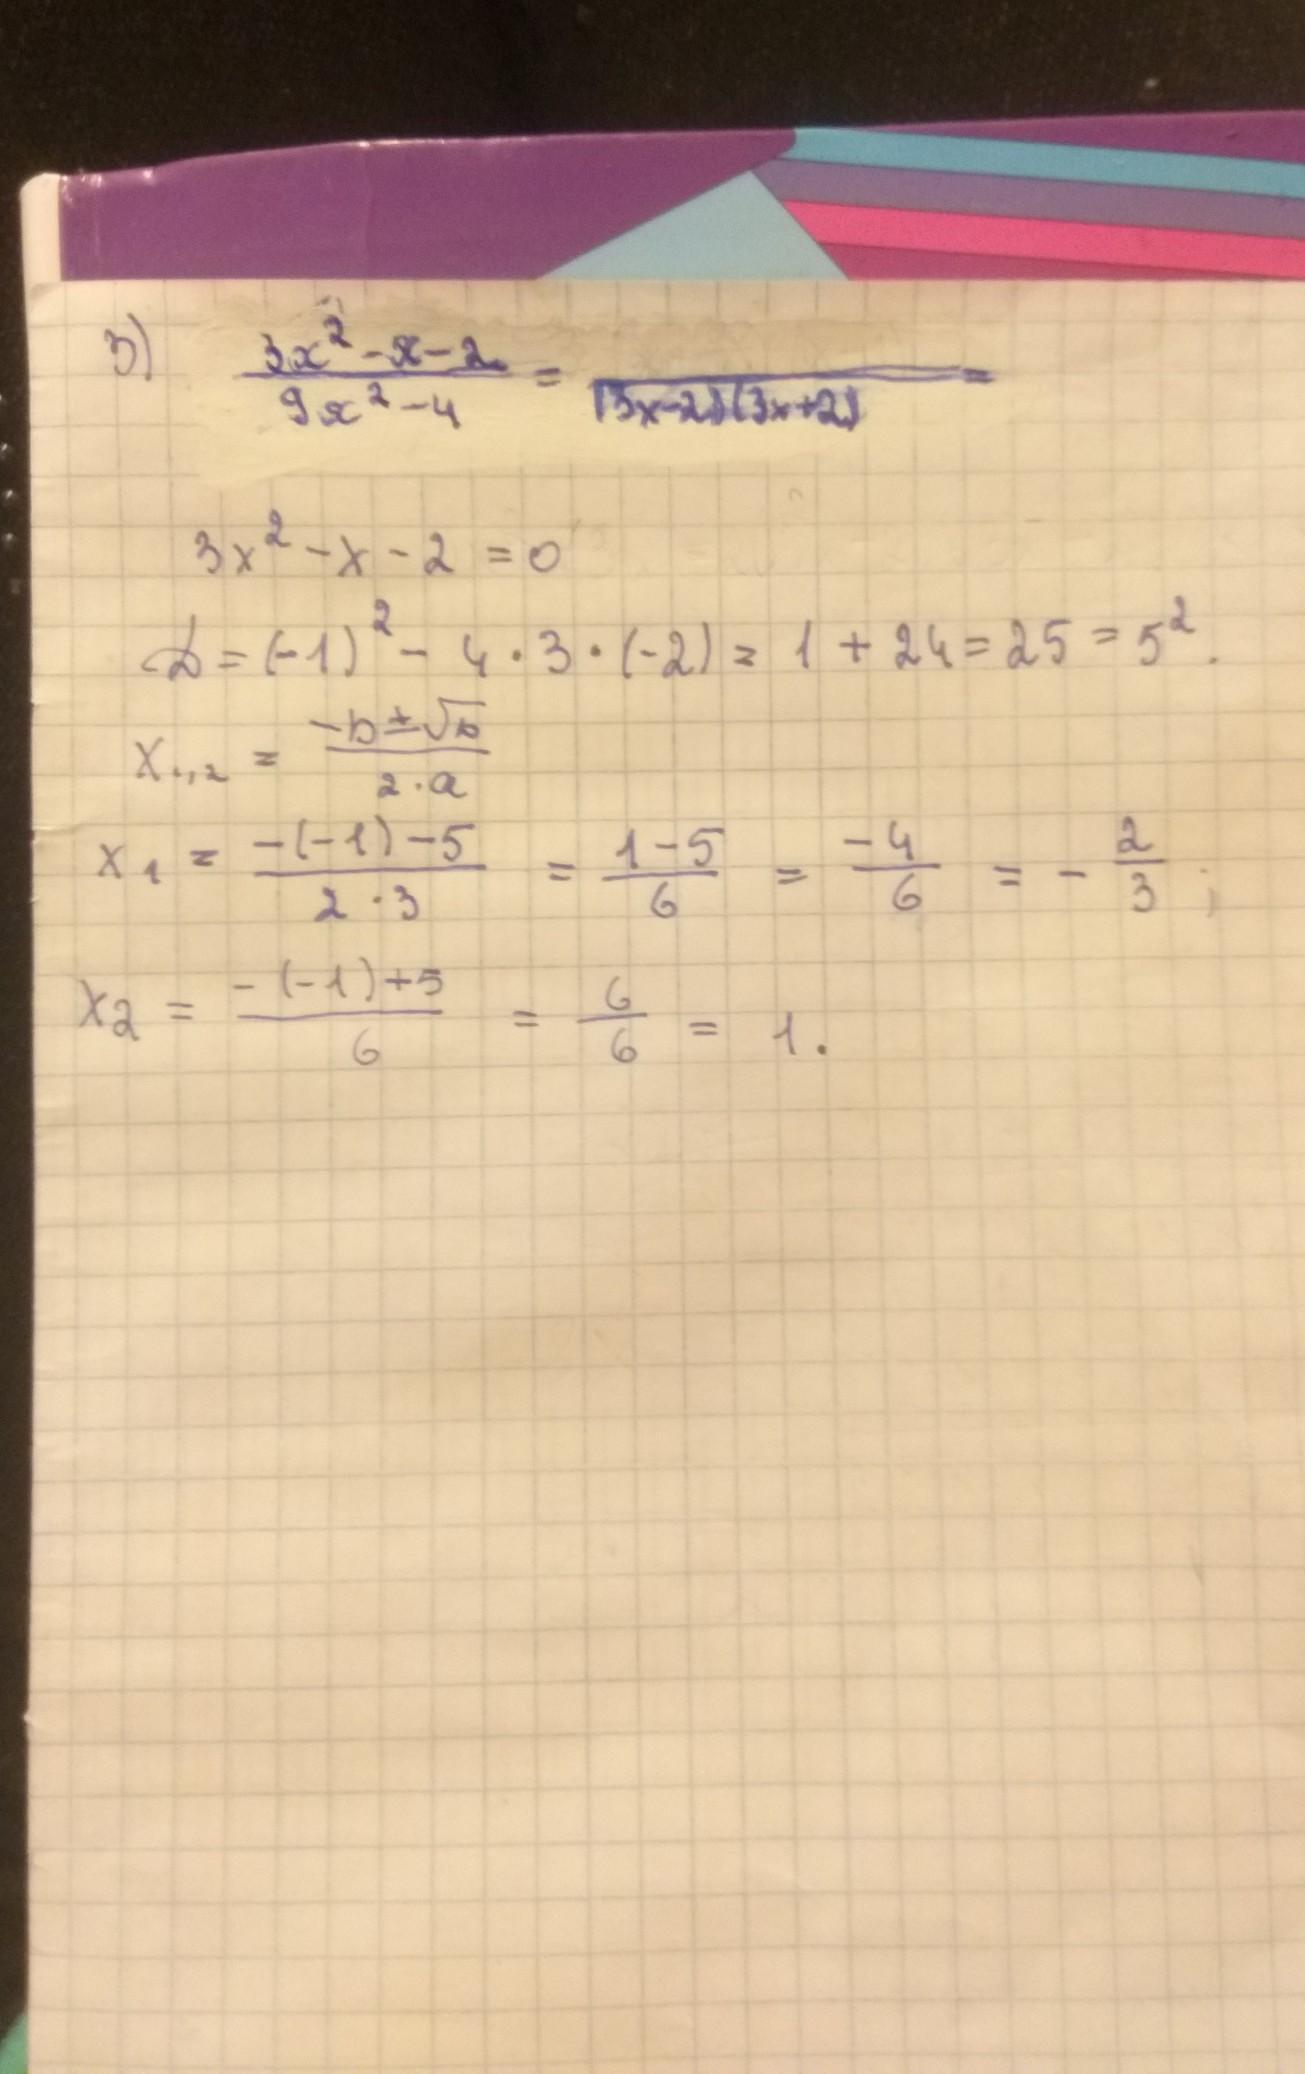 3) (3x² - x - 2)/(9x² - 4) = /((3x-2)(3x+2)) =
3x² - x - 2 = 0
D = (-1)² - 4 · 3 · (-2) = 1 + 24 = 25 = 5².
x₁,₂ = (-b ± √D)/(2 · a)
x₁ = (-(-1) - 5)/(2 · 3) = (1 - 5)/6 = (-4)/6 = - 2/3 ;
x₂ = (-(-1) + 5)/6 = 6/6 = 1.